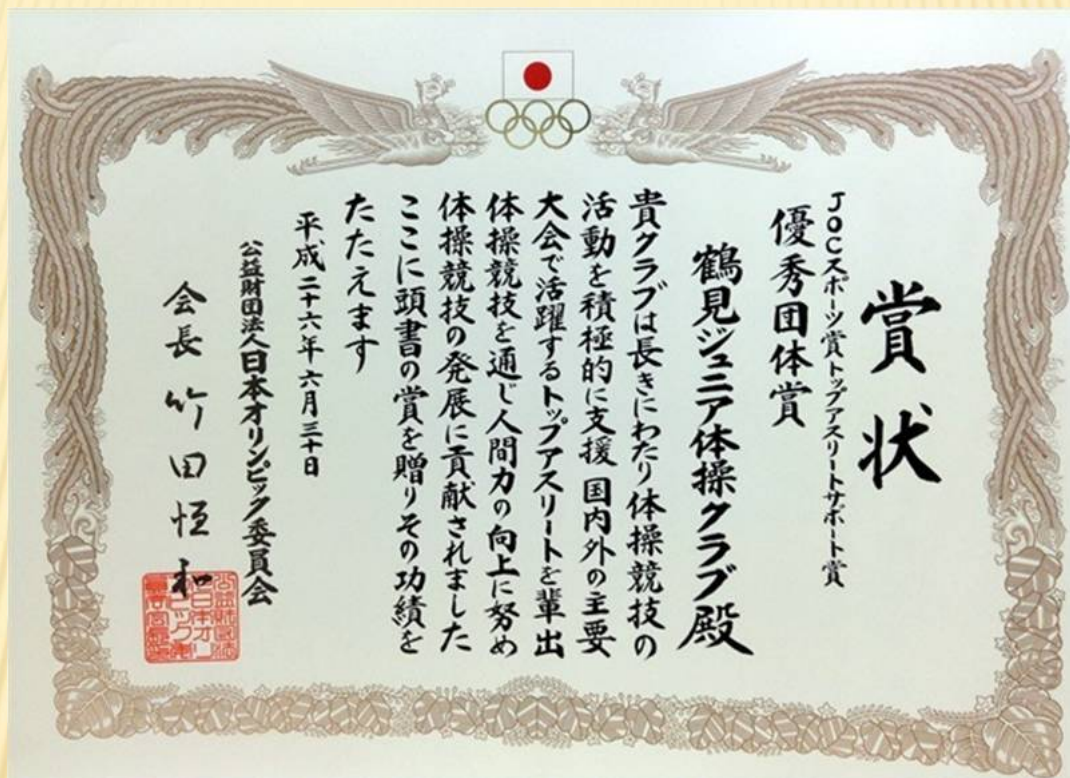 賞状
JOCスポーツ賞トップアスリートサポート賞
優秀団体賞
鶴見ジュニア体操クラブ殿
貴クラブは長きにわたり体操競技の
活動を積極的に支援 国内外の主要
大会で活躍するトップアスリートを輩出
体操競技を通じ人間力の向上に努め
体操競技の発展に貢献されました
ここに頭書の賞を贈りその功績を
たたえます
平成二十六年六月三十日
公益財団法人日本オリンピック委員会
会長 竹田恆和